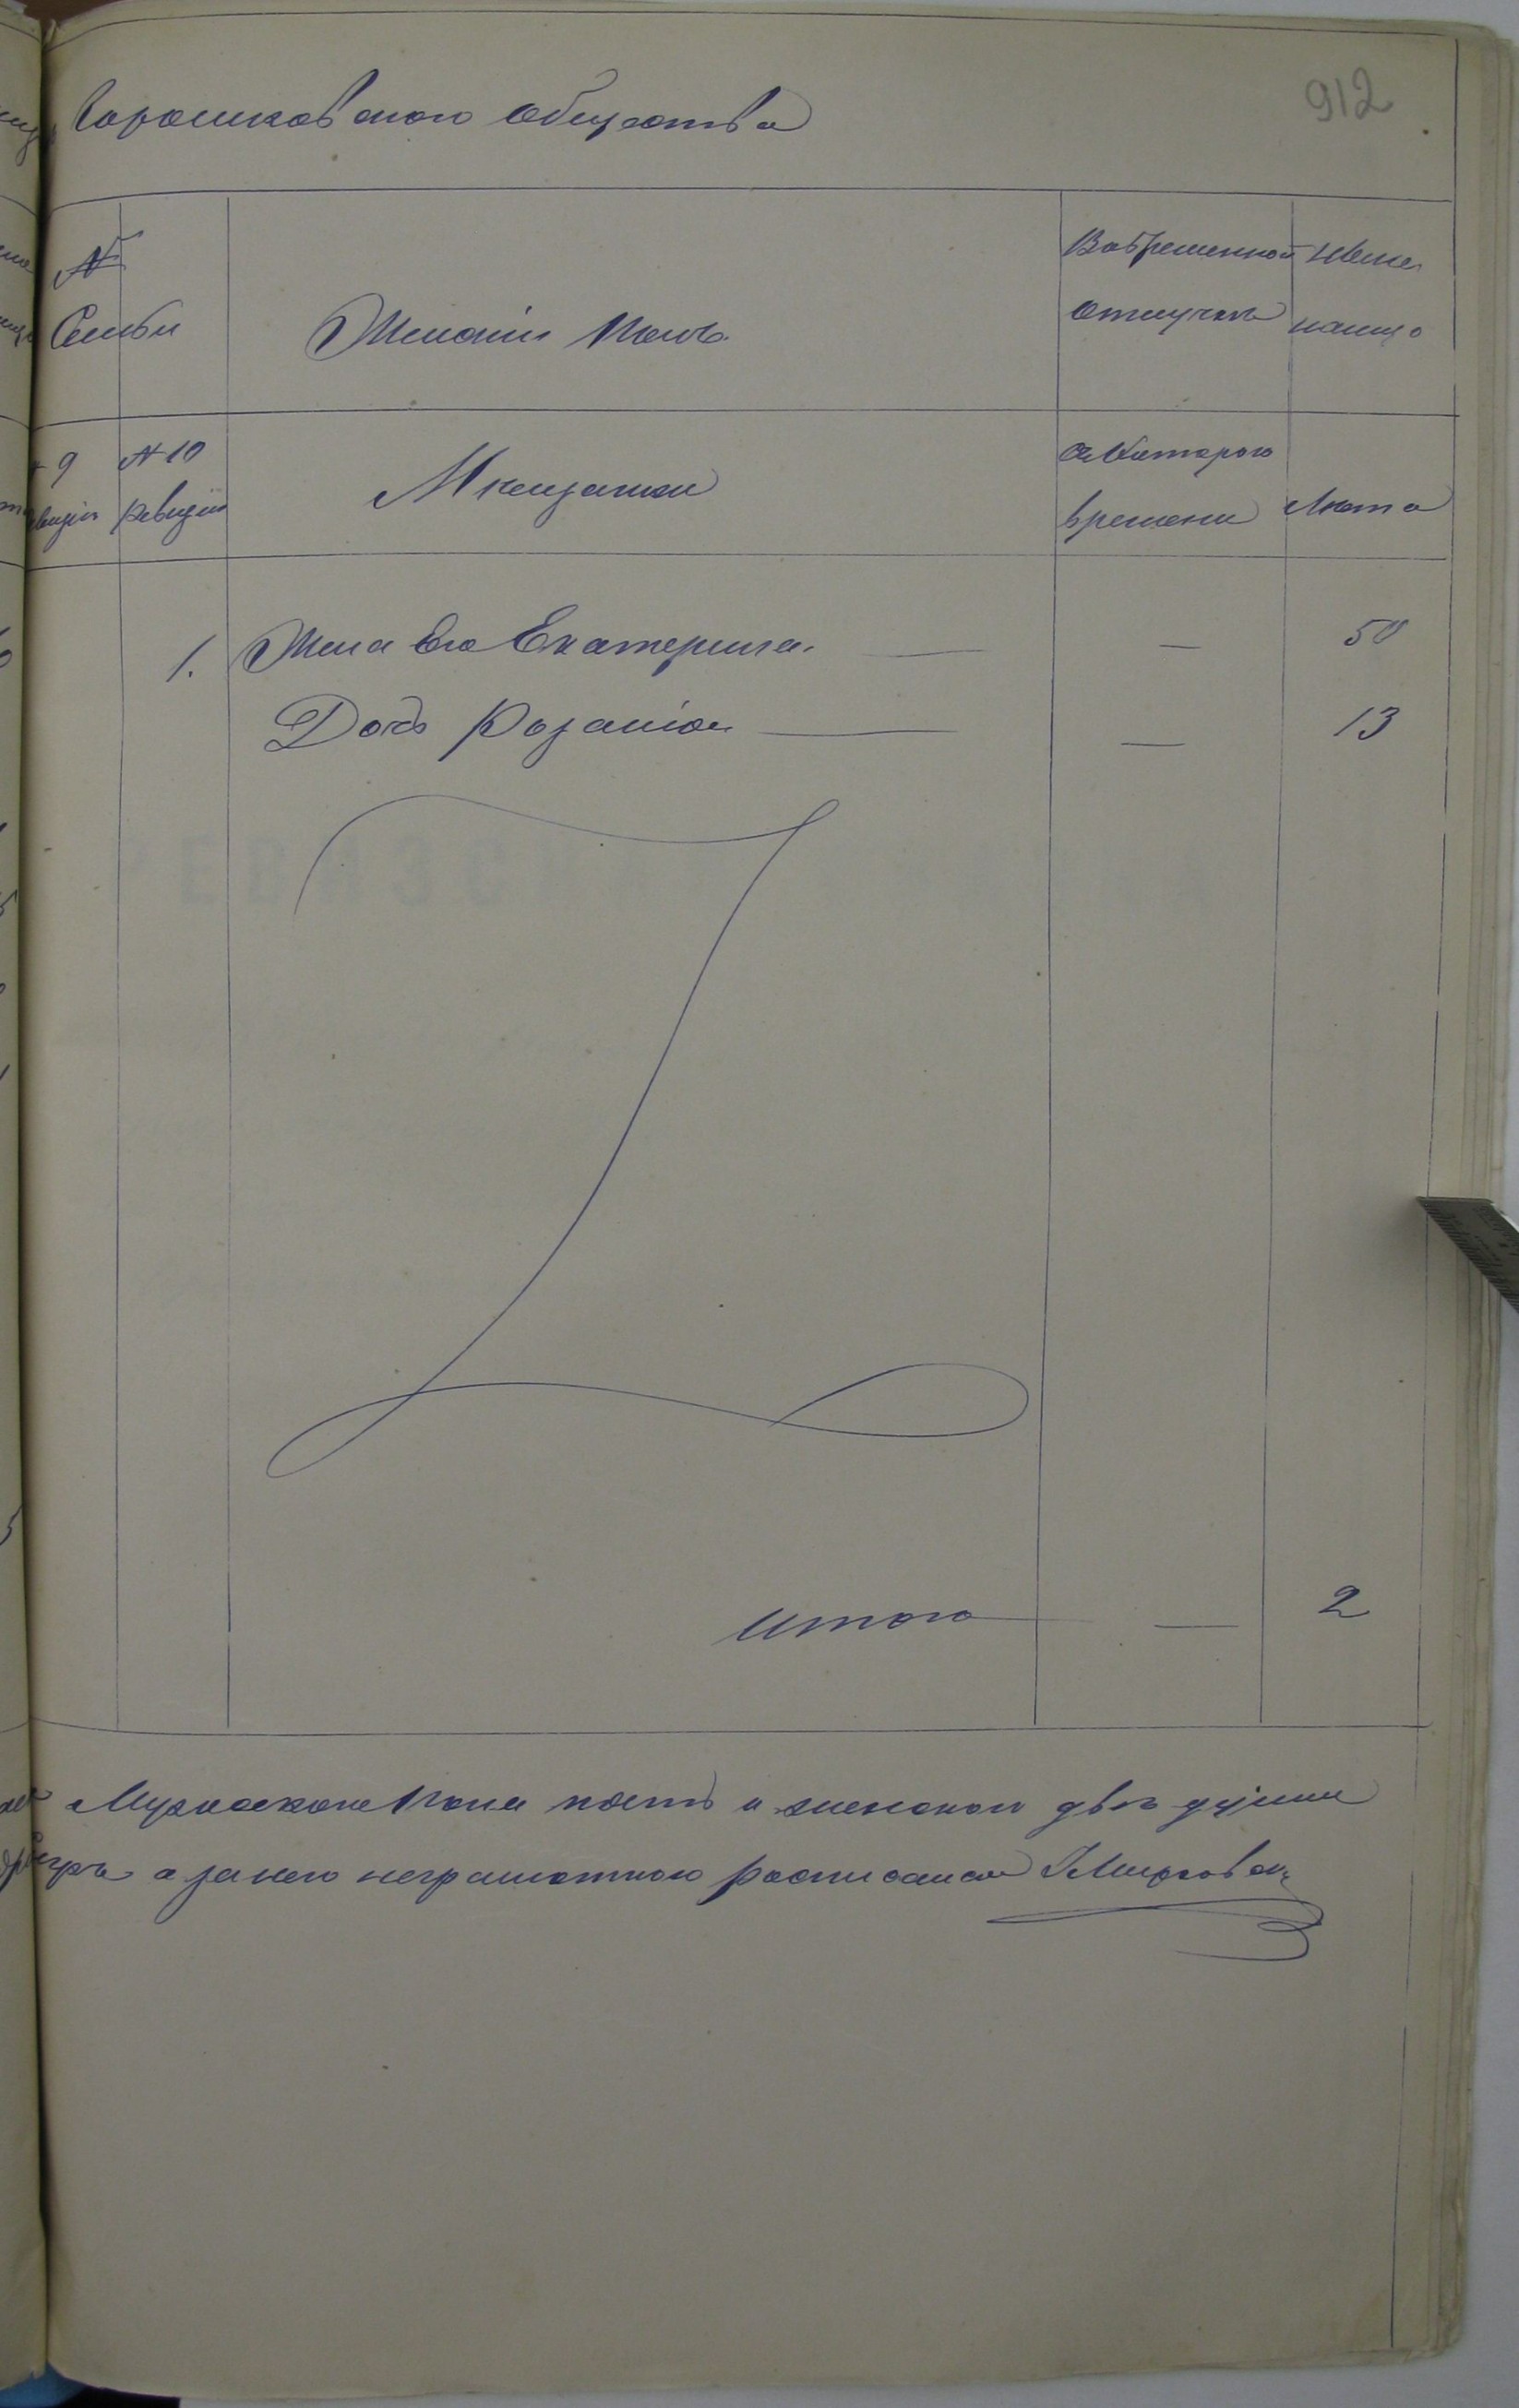 912
Общества
№ Семьи
Женскій Полъ.
Вовременной отлучкѣ
Ныне налицо
9 ревизіи
№ 10 ревизіи
Мѣщанки
Съкоторого времени
Лѣта
1. Жена Его Екатерина. — — 50
Дочь Розалія — — 13
Итого — — 2
Мужескаго Пола пять и женскаго двѣ души
а занего неграмотного росписался